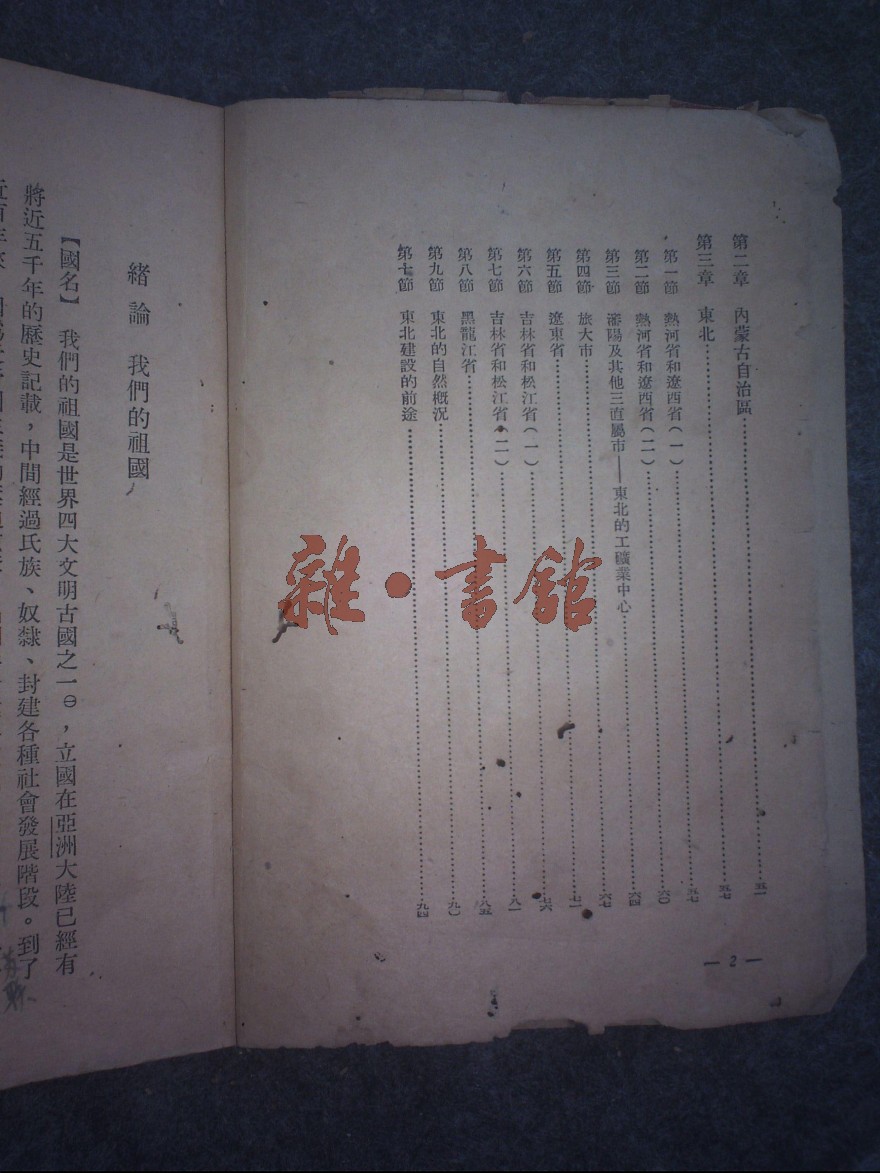 第二章 內蒙古自治區……五一
第三章 東北……五七
第一節 熱河省和遼西省(一)……五七
第二節 熱河省和遼西省(二)……六〇
第三節 瀋陽及其他三直屬市——東北的工礦業中心……六四
第四節 旅大市……六七
第五節 遼東省……七一
第六節 吉林省和松江省(一)……七六
第七節 吉林省和松江省(二)……八一
第八節 黑龍江省……八五
第九節 東北的自然槪況……九〇
第十節 東北建設的前途……九四
— 2 —
雜·書館
緒論 我們的祖國
【國名】 我們的祖國是世界四大文明古國之一㊀,立國在亞洲大陸已經有
將近五千年的歷史記載,中間經過氏族、奴隸、封建各種社會發展階段。到了